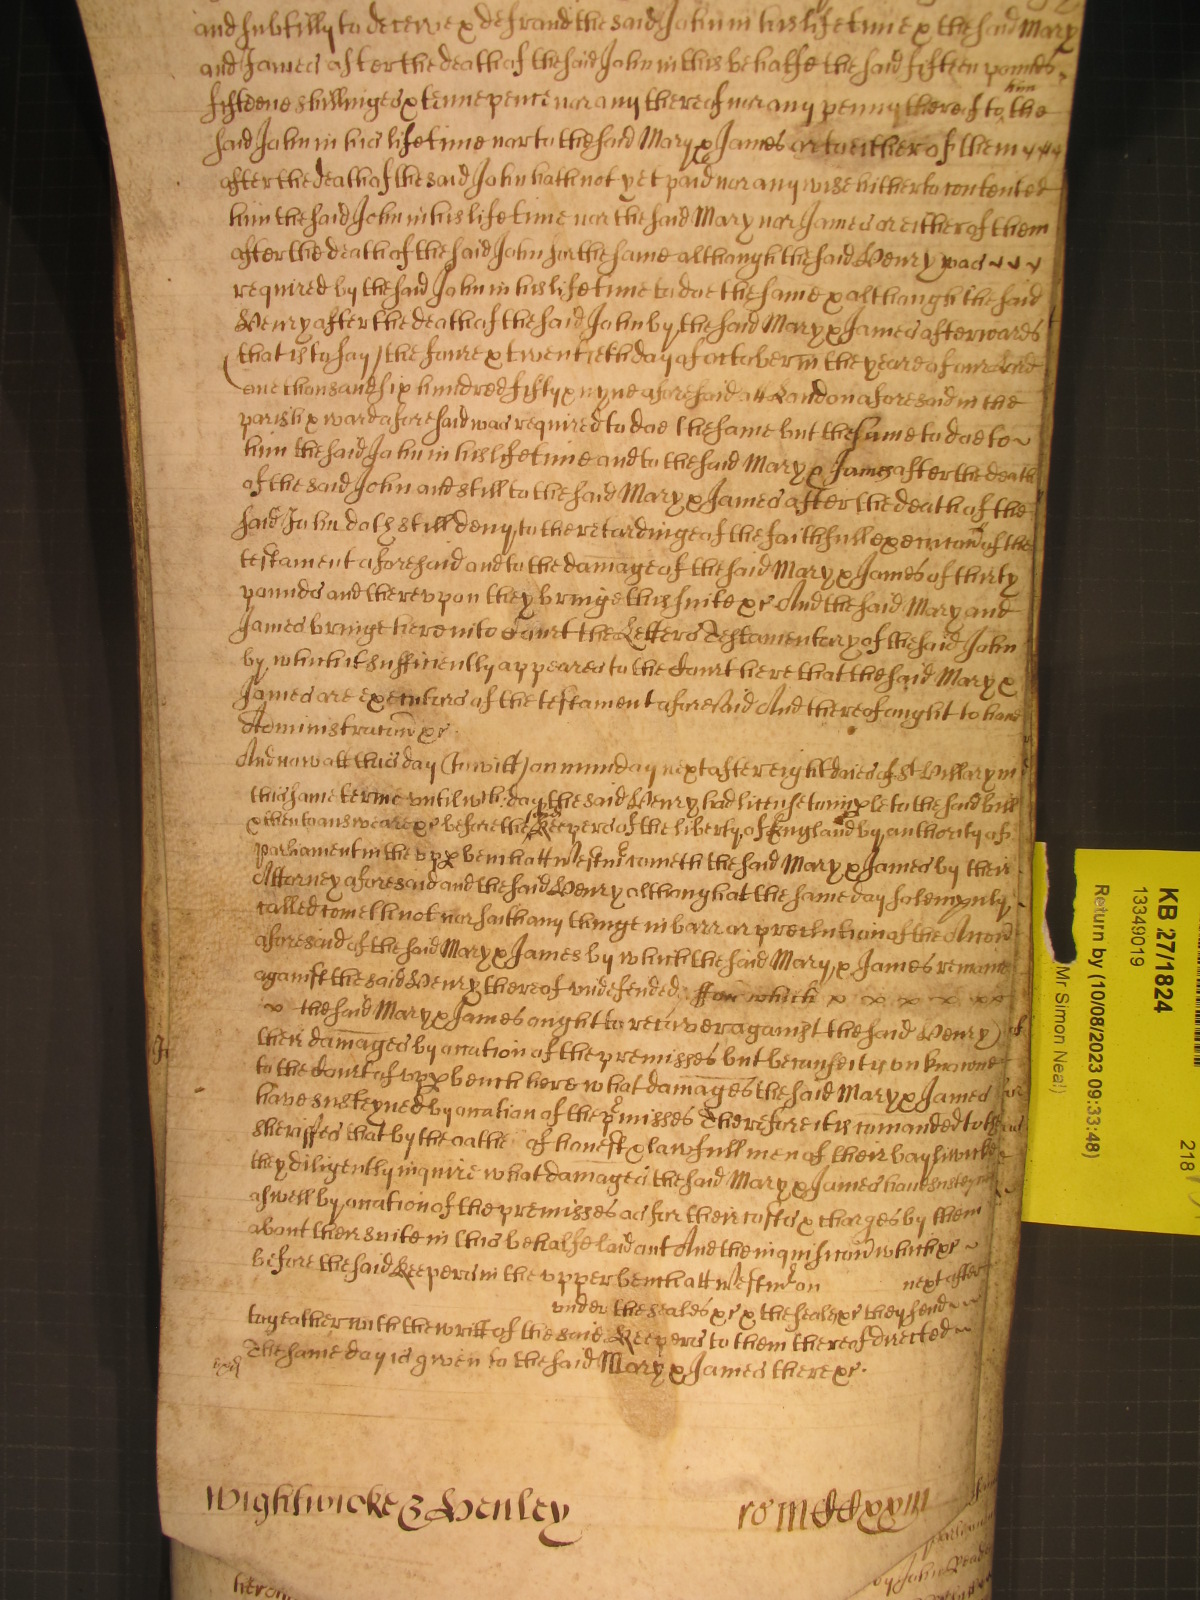 and subtilly to deceive & defraud the said John in his life time & the said Mary
and James after the death of the said John in this behalfe the said fifteen pounds
him
fifteene shillinges & tenne pence nor any thereof nor any penny thereof to the
said John in his life time nor to the said Mary & James or to either of them
after the death of the said John hath not yet paid nor any wise hitherto contented
him the said John in his life time nor the said Mary nor James or either of them
after the death of the said John for the same although the said Henry was
required by the said John in his life time to doe the same & although the said
Henry after the death of the said John by the said Mary & James afterwards
that is to say) the foure & twentieth day of october in the yeare of our Lord
one thousand six hundred fifty & nyne aforesaid att London aforesaid in the
parish & ward aforesaid was required to doe the same but the same to doe to
him the said John in his life time and to the said Mary & James after the death
of the said John and still to the said Mary & James after the death of the
said John doth still deny, to the retardinge of the faithfull execucon of the
testament aforesaid and to the damage of the said Mary & James of thirty
pounds and thereupon they bringe this suite &c And the said Mary and
James bringe here into Court the Letters Testamentary of the said John
by which it sufficiently appeares to the Court here that the said Mary &
James are executors of the testament aforesaid And thereof ought to have
Administracon &c.
And now att this day (to witt) on munday next after eight daies of St Hillary in
this same terme untill wch day the said Henry had license to imple to the said bill
& then to answeare &c before the Keepers of the liberty of England by authority of
parliament in the upp bench att Westmr cometh the said Mary & James by their
Attorney aforesaid and the said Henry although att the same day solempnly
called cometh not nor saith any thinge in barr or preclution of the Accon
aforesaid of the said Mary & James by which the said Mary & James remaine
against the said Henry thereof undefended. ffor which x x x x x x
the said Mary & James ought to recover against the said Henry
their damages by occation of the premisses but because it is unknowne
to the Court of upp bench here what damages the said Mary & James
have susteyned by occation of the pmisses Therefore it is comanded to the
sheriffes that by the oathe of honest & lawfull men of their bayliwicke
they diligently inquire what damages the said Mary & James have susteyned
aswell by occation of the premisses as for their costs & charges by them
about their suite in this behalfe laid out And the inquisicon which &c
before the said Keepers in the upper bench att Westmr on next after
under the seales &c & the seale &c they send
togeather with the writt of the said Keepers to them thereof directed
The same day is given to the said Mary & James there &c.
Wightwicke & Henley
ro MCCxxiii
KB 27/1824
13349019
Return by (10/08/2023 09:33:48)
Mr Simon Neal)
218